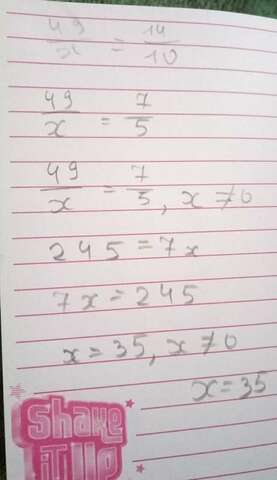 49/x = 14/10
49/x = 7/5
49/x = 7/5, x ≠ 0
245 = 7x
7x = 245
x = 35, x ≠ 0
x = 35
Shake
it Up